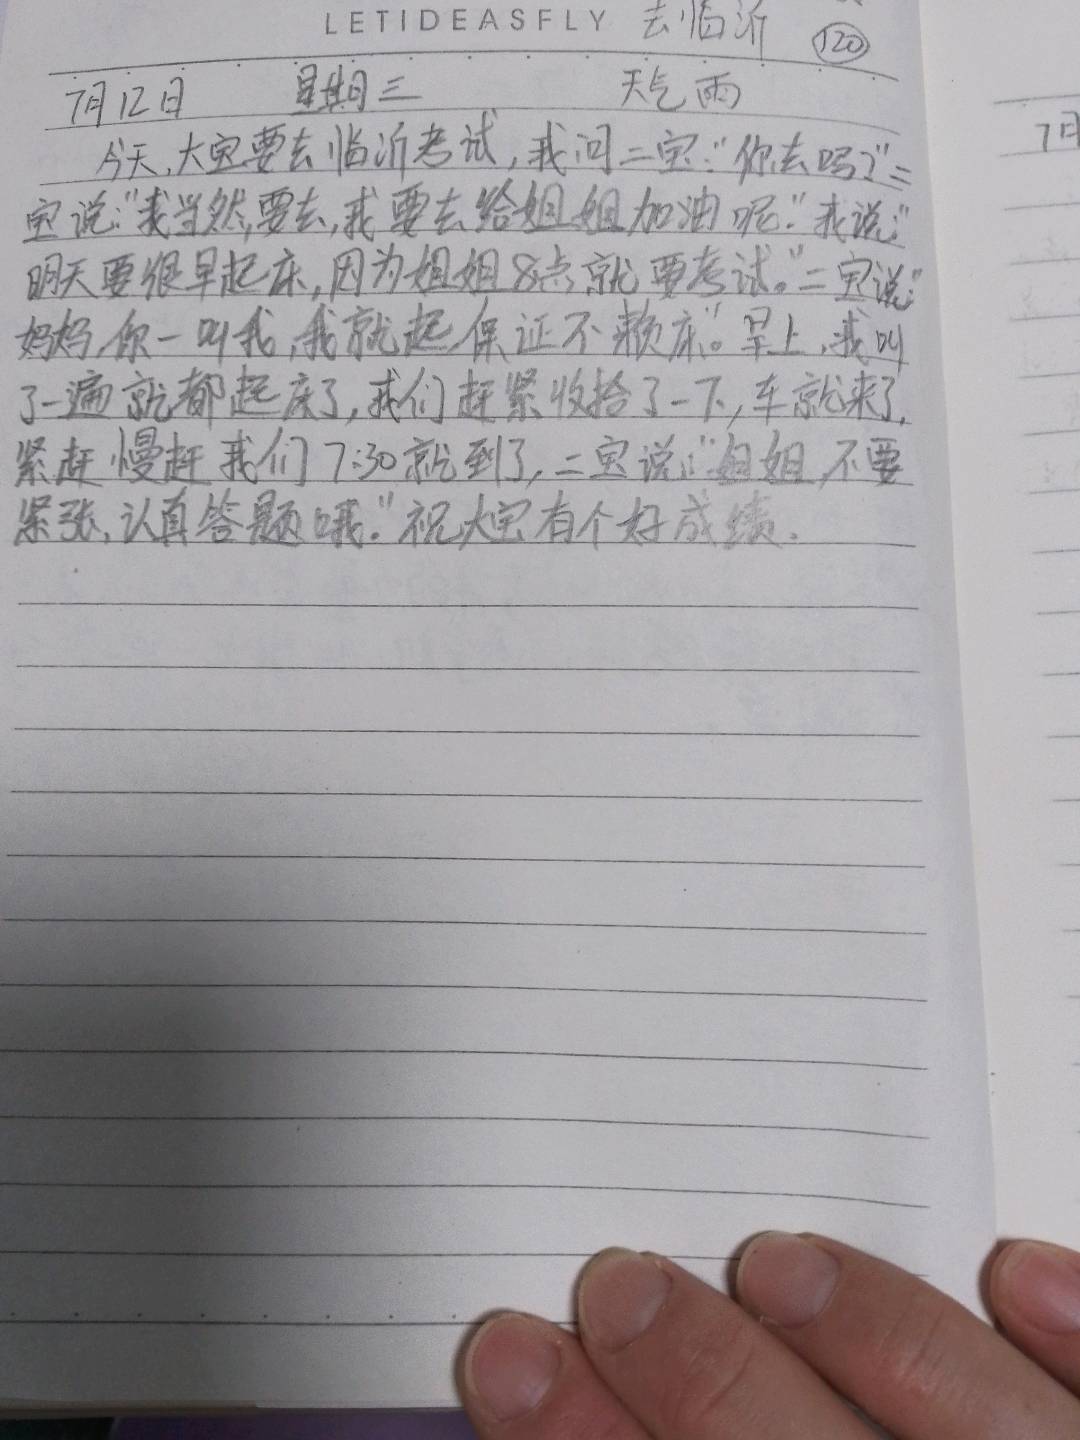 LETIDEASFLY 去临沂 120
7月12日 星期三 天气雨
今天,大宝要去临沂考试,我问二宝:“你去吗?”二
宝说:“我当然要去,我要去给姐姐加油呢.”我说:“
明天要很早起床,因为姐姐8点就要考试。”二宝说:“
妈妈,你一叫我,我就起,保证不赖床”。早上,我叫
了一遍就都起床了,我们赶紧收拾了一下,车就来了,
紧赶慢赶我们7:30就到了,二宝说:“姐姐,不要
紧张,认真答题哦.”祝大宝有个好成绩.
7月